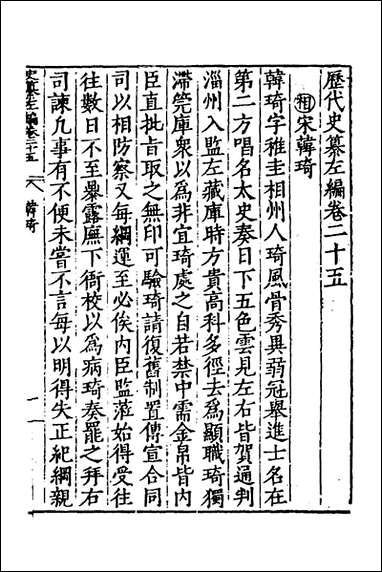 歷代史纂左編卷二十五
相宋韓琦
韓琦字稚圭相州人琦風骨秀異弱冠舉進士名在
第二方唱名太史奏日下五色雲見左右皆賀通判
淄州入監左藏庫時方貴高科多徑去為顯職琦獨
滯筦庫衆以為非宜琦處之自若禁中需金帛皆內
臣直批旨取之無印可驗琦請復舊制置傳宣合同
司以相防察又每綱運至必俟內臣監蒞始得受往
往數日不至暴露廡下衙校以為病琦奏罷之拜右
司諫凡事有不便未嘗不言每以明得失正紀綱親
史纂左編卷二十五 韓琦 一